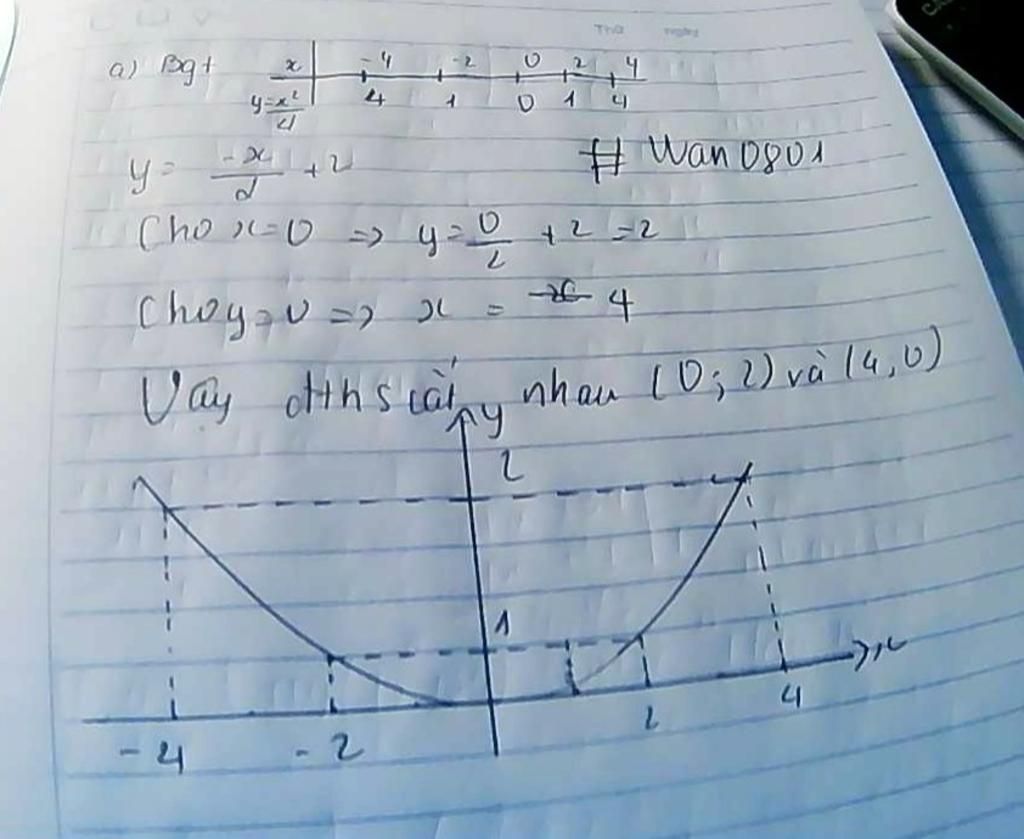 Thứ Ngày
a) Bgt x -4 -2 0 2 4
y=x²/4 4 1 0 1 4
y= -x/2 +2 # Wan0801
Cho x=0 => y= 0/2 +2 =2
Cho y=0 => x = 4
Vậy đths cắt nhau (0;2) và (4,0)
y
2
1
x
-4 -2 2 4